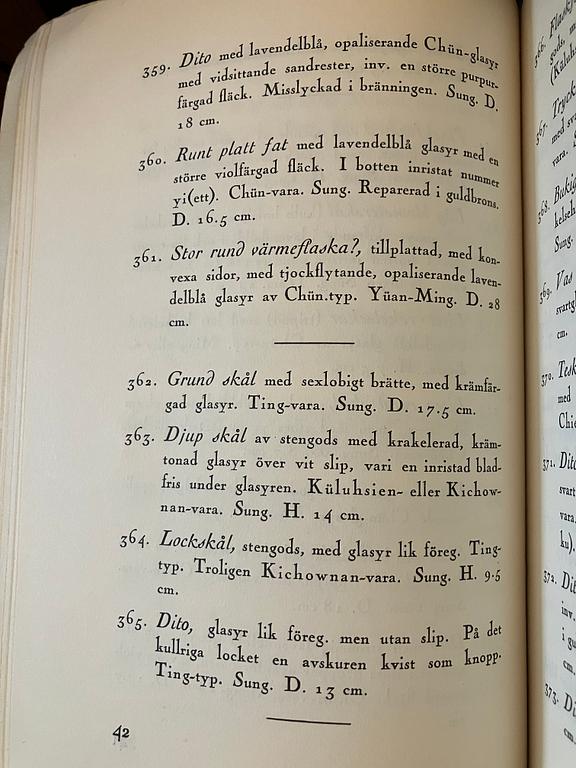 359. Dito med lavendelblå, opaliserande Chün-glasyr
med vidsittande sandrester, inv. en större purpur-
färgad fläck. Misslyckad i bränningen. Sung. D.
18 cm.
360. Runt platt fat med lavendelblå glasyr med en
större violfärgad fläck. I botten inristat nummer
yi(ett). Chün-vara. Sung. Reparerad i guldbrons.
D. 16.5 cm.
361. Stor rund värmeflaska?, tillplattad, med kon-
vexa sidor, med tjockflytande, opaliserande laven-
delblå glasyr av Chün.typ. Yüan-Ming. D. 28
cm.
362. Grund skål med sexlobigt brätte, med krämfär-
gad glasyr. Ting-vara. Sung. D. 17.5 cm.
363. Djup skål av stengods med krakelerad, kräm-
tonad glasyr över vit slip, vari en inristad blad-
fris under glasyren. Küluhsien- eller Kichow-
nan-vara. Sung. H. 14 cm.
364. Lockskål, stengods, med glasyr lik föreg. Ting-
typ. Troligen Kichownan-vara. Sung. H. 9.5
cm.
365. Dito, glasyr lik föreg. men utan slip. På det
kullriga locket en avskuren kvist som knopp.
Ting-typ. Sung. D. 13 cm.
42
366. Flaskf
gods, m
(Küluh
367. Tryck
med sva
vara.
368. Bukig
kelseb
Sung.
369. Vas
svartg
cm.
370. Tesk
med
Chie
371. Dito
svart
vara.
ku).
372. Dit
inv.
i gu
cm.
373. Di
cm.